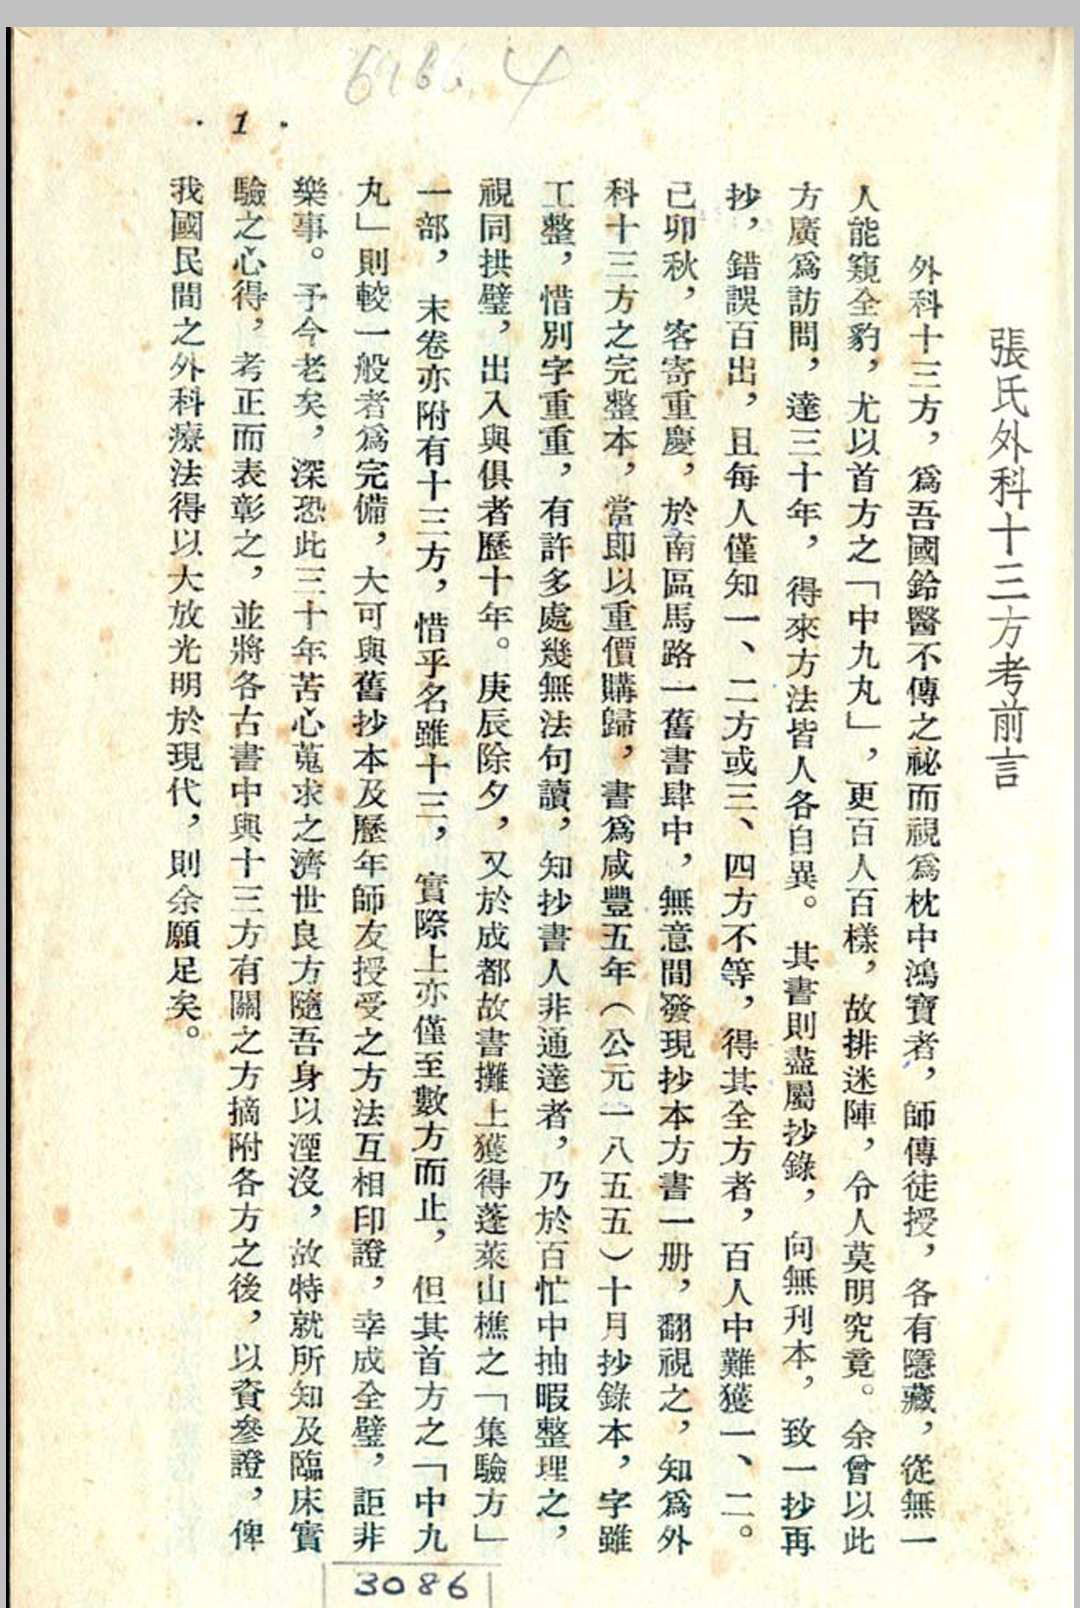 6186.4
· 1 ·
張氏外科十三方考前言
外科十三方，爲吾國鈴醫不傳之祕而視爲枕中鴻寶者，師傳徒授，各有隱藏，從無一
人能窺全豹，尤以首方之「中九丸」，更百人百樣，故排迷陣，令人莫明究竟。余曾以此
方廣爲訪問，達三十年，得來方法皆人各自異。其書則盡屬抄錄，向無刊本，致一抄再
抄，錯誤百出，且每人僅知一、二方或三、四方不等，得其全方者，百人中難獲一、二。
己卯秋，客寄重慶，於南區馬路一舊書肆中，無意間發現抄本方書一册，翻視之，知爲外
科十三方之完整本，當即以重價購歸，書爲咸豐五年（公元一八五五）十月抄錄本，字雖
工整，惜別字重重，有許多處幾無法句讀，知抄書人非通達者，乃於百忙中抽暇整理之，
視同拱璧，出入與俱者歷十年。庚辰除夕，又於成都故書攤上獲得蓬萊山樵之「集驗方」
一部，末卷亦附有十三方，惜乎名雖十三，實際上亦僅至數方而止，但其首方之「中九
丸」則較一般者爲完備，大可與舊抄本及歷年師友授受之方法互相印證，幸成全璧，詎非
樂事。予今老矣，深恐此三十年苦心蒐求之濟世良方隨吾身以湮沒，故特就所知及臨床實
驗之心得，考正而表彰之，並將各古書中與十三方有關之方摘附各方之後，以資參證，俾
我國民間之外科療法得以大放光明於現代，則余願足矣。
3086